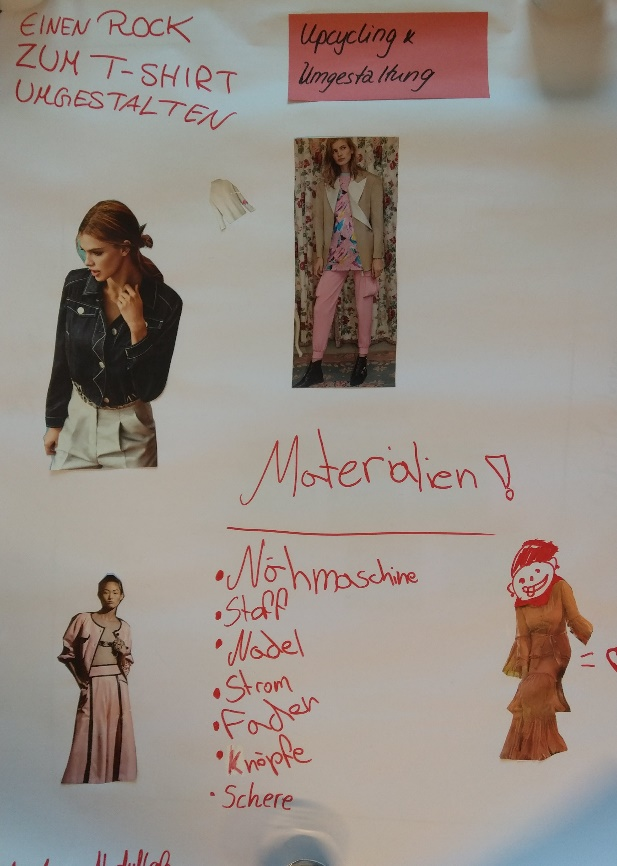 EINEN ROCK
ZUM T-SHIRT
UMGESTALTEN
Upcycling &
Umgestaltung
Materialien!
• Nähmaschine
• Stoff
• Nadel
• Strom
• Faden
• Knöpfe
• Schere
=